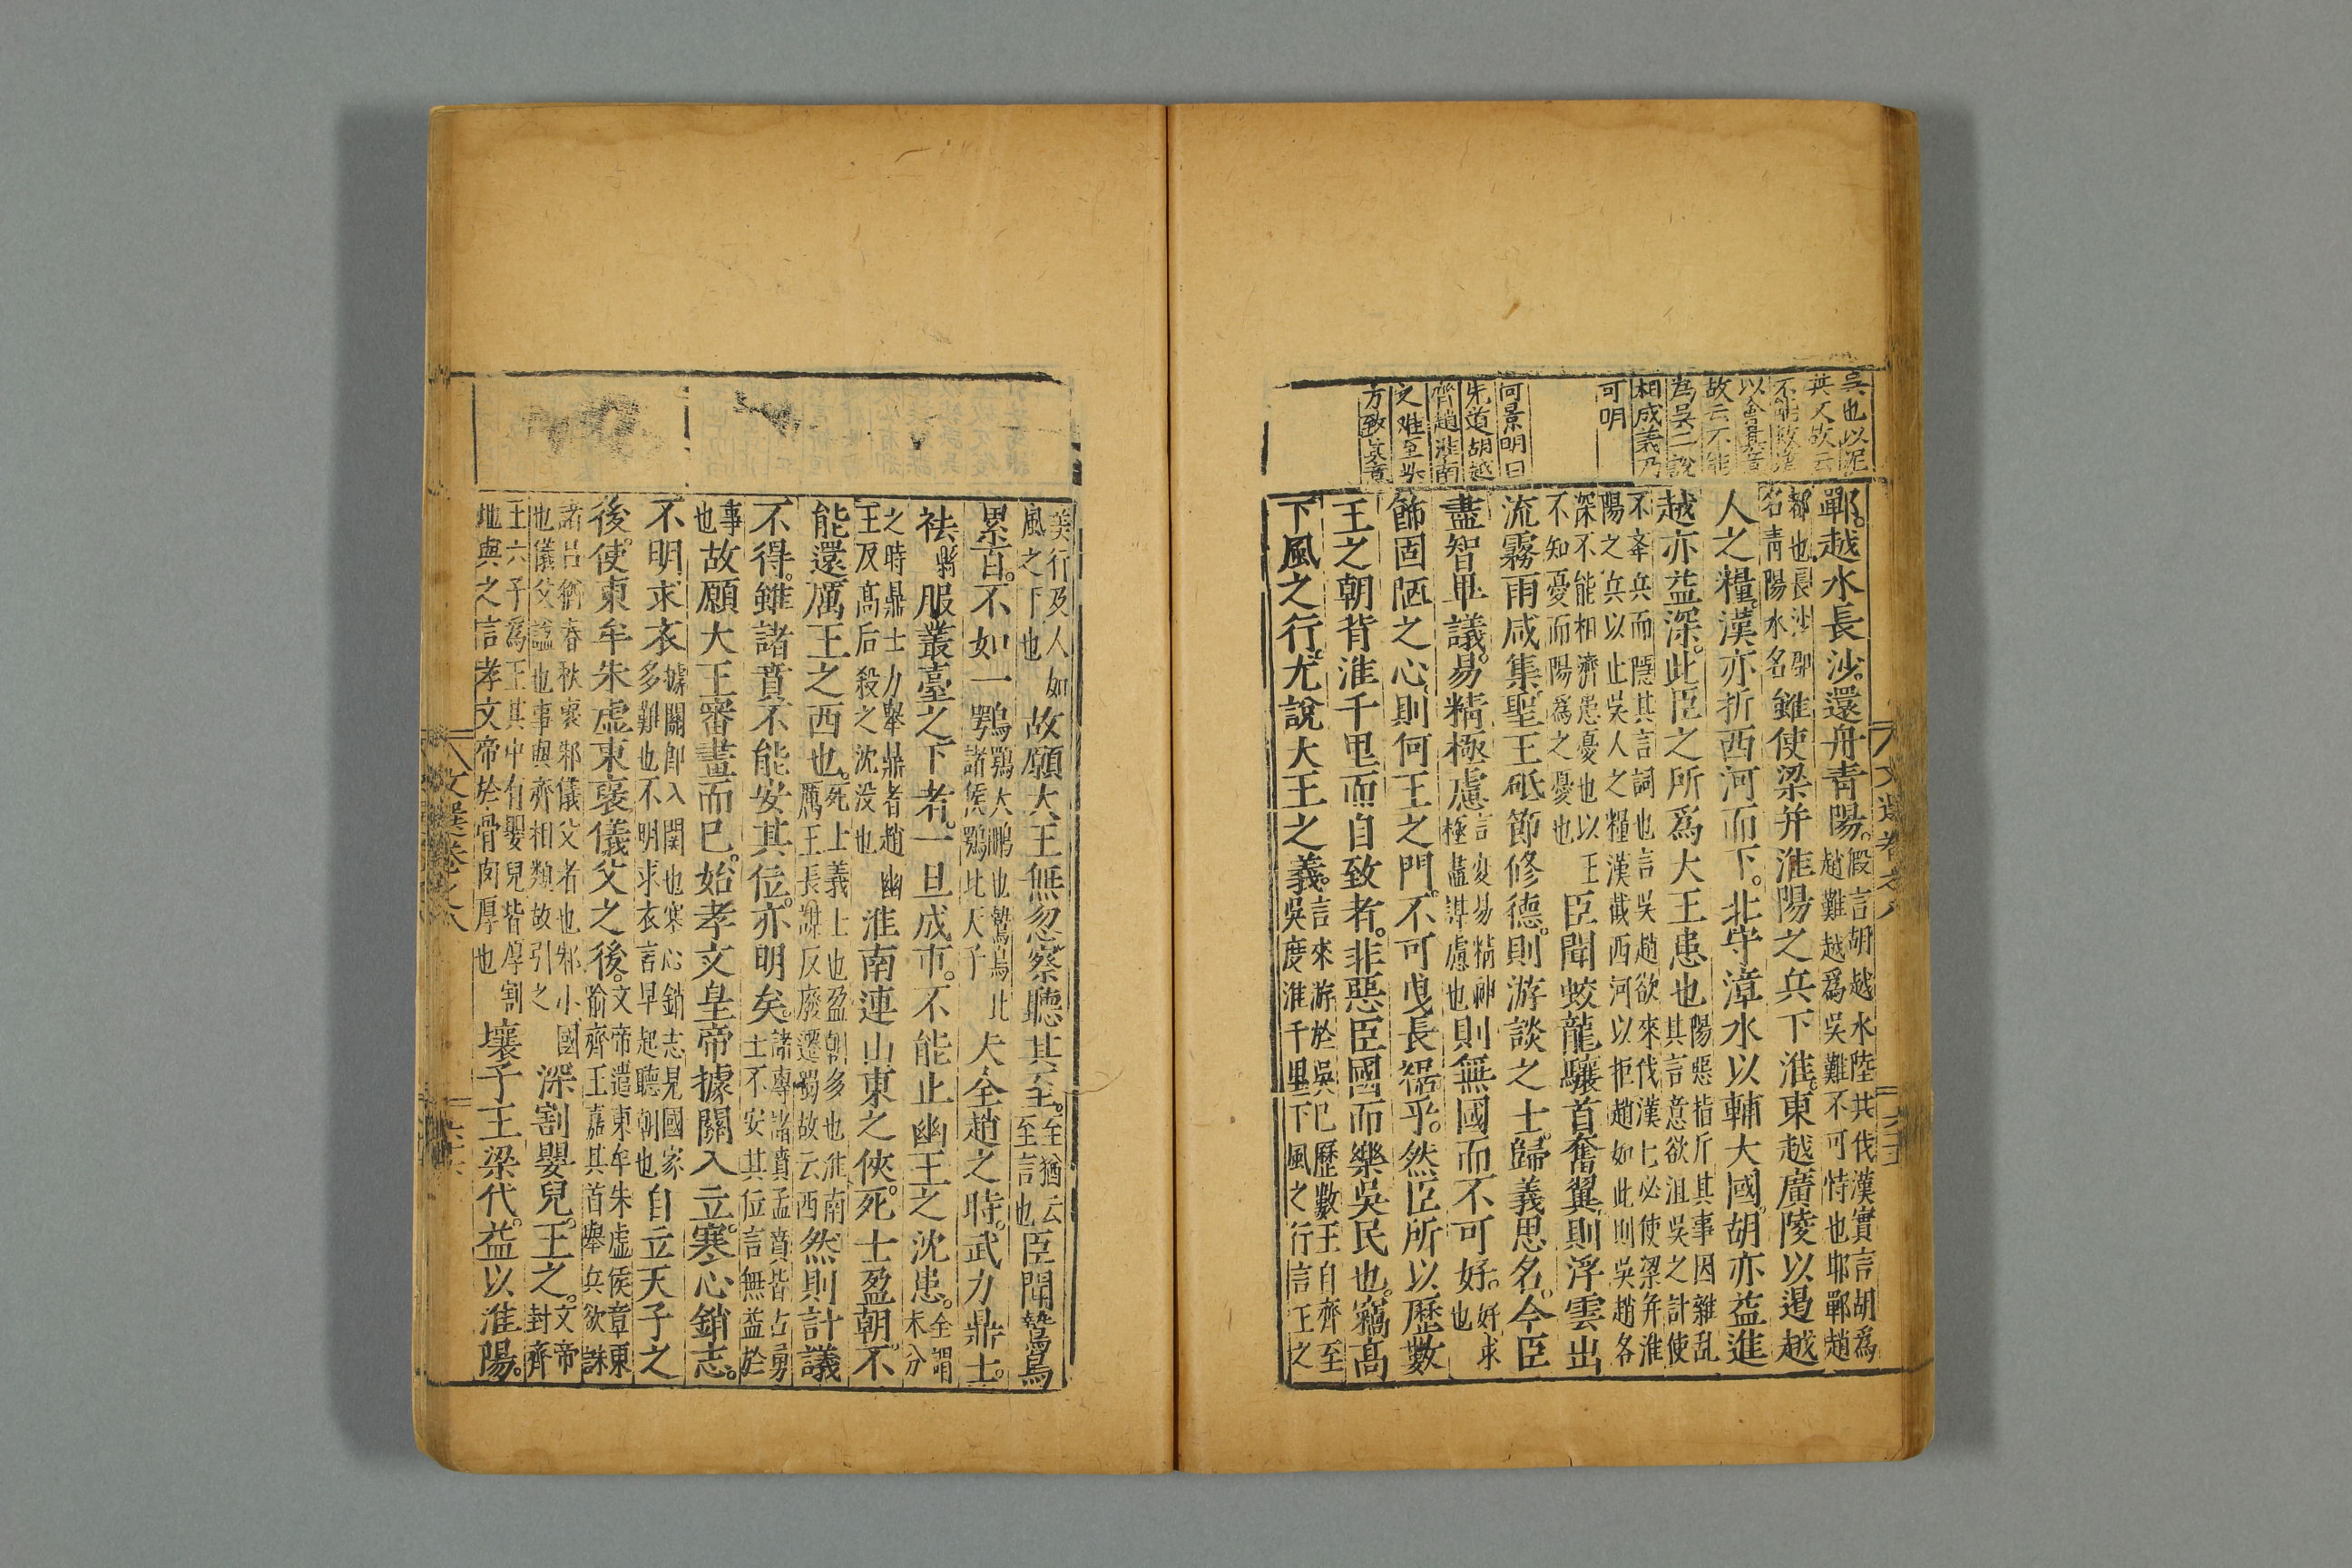 吳也以
其又故云
不能故
以會其意
故云不能
為吳二說
相成義乃
可明
何景明曰
先道胡越
齊趙淮南
之难至此
方致其意
鄲。越水長沙。還舟青陽。假言胡越水陸共伐漢實言胡爲趙難越爲吳難不可恃也耶鄲趙
都也長沙郡名青陽水名雖使梁并淮陽之兵下淮。東越廣陵以遏越
人之糧。漢亦折西河而下。北守漳水以輔大國。胡亦益進
越亦益深。此臣之所爲大王患也陽惡指斤其事因雜乱其言意欲沮吳之計使
不夅兵而隱其言詞也言吳趙欲來伐漢七必使梁并淮陽之兵以止吳人之糧漢截西河以拒趙如此則吳趙各
深不能相濟患憂也以王不知憂而陽爲之憂也臣聞蛟龍驤首奮翼則浮雲出
流霧雨咸集。聖王砥節修德。則游談之士。歸義思名。今臣
盡智畢議。易精極慮言変易精神極盡謀慮也則無國而不可奸。奸求也
飾固陋之心。則何王之門。不可曳長裾乎。然臣所以歷數
王之朝背淮千里而自致者。非惡臣國而樂吳民也。竊高
下風之行。尤說大王之義。言來游於吳已歷數王自齊至吳度淮千里下風之行言王之
文選卷之八
六十五
美行及人如風之下也故願大王無忽察聽其至。至猶云至言也臣聞鷙鳥
累百。不如一鶚鶚大鵰也鷙鳥比諸侯鶚比天子夫全趙之時。武力鼎士。
袨縣服叢臺之下者。一旦成市。不能止幽王之沈患。全謂未分
之時鼎士力舉鼎者趙幽王及高后殺之沈没也淮南連山東之俠。死士盈朝。不
能還厲王之西也。死上義上也盈朝多也淮南厲王長謀反廢遷蜀故云西然則計議
不得。雖諸賁不能安其位。亦明矣。諸專諸賁孟賁皆占勇士不安其位言無益於
事也故願大王審畫而已。始孝文皇帝據關入立。寒心銷志。
不明求衣據關即入関也寒心銷志見國家多難也不明求衣言早起聽朝也自立天子之
後。使東牟朱虚東褒儀父之後。文帝遣東牟朱虚侯章東喻齊王嘉其首舉兵欲誅
諸呂猶春秋褒邾儀父者也邾小國也儀父謚也事與齊相類故引之深割嬰兒。王之。文帝封齊
王六子爲王其中有嬰兒皆厚割地與之言孝文帝於骨肉厚也壤子王梁代。益以淮陽。
文選卷之八